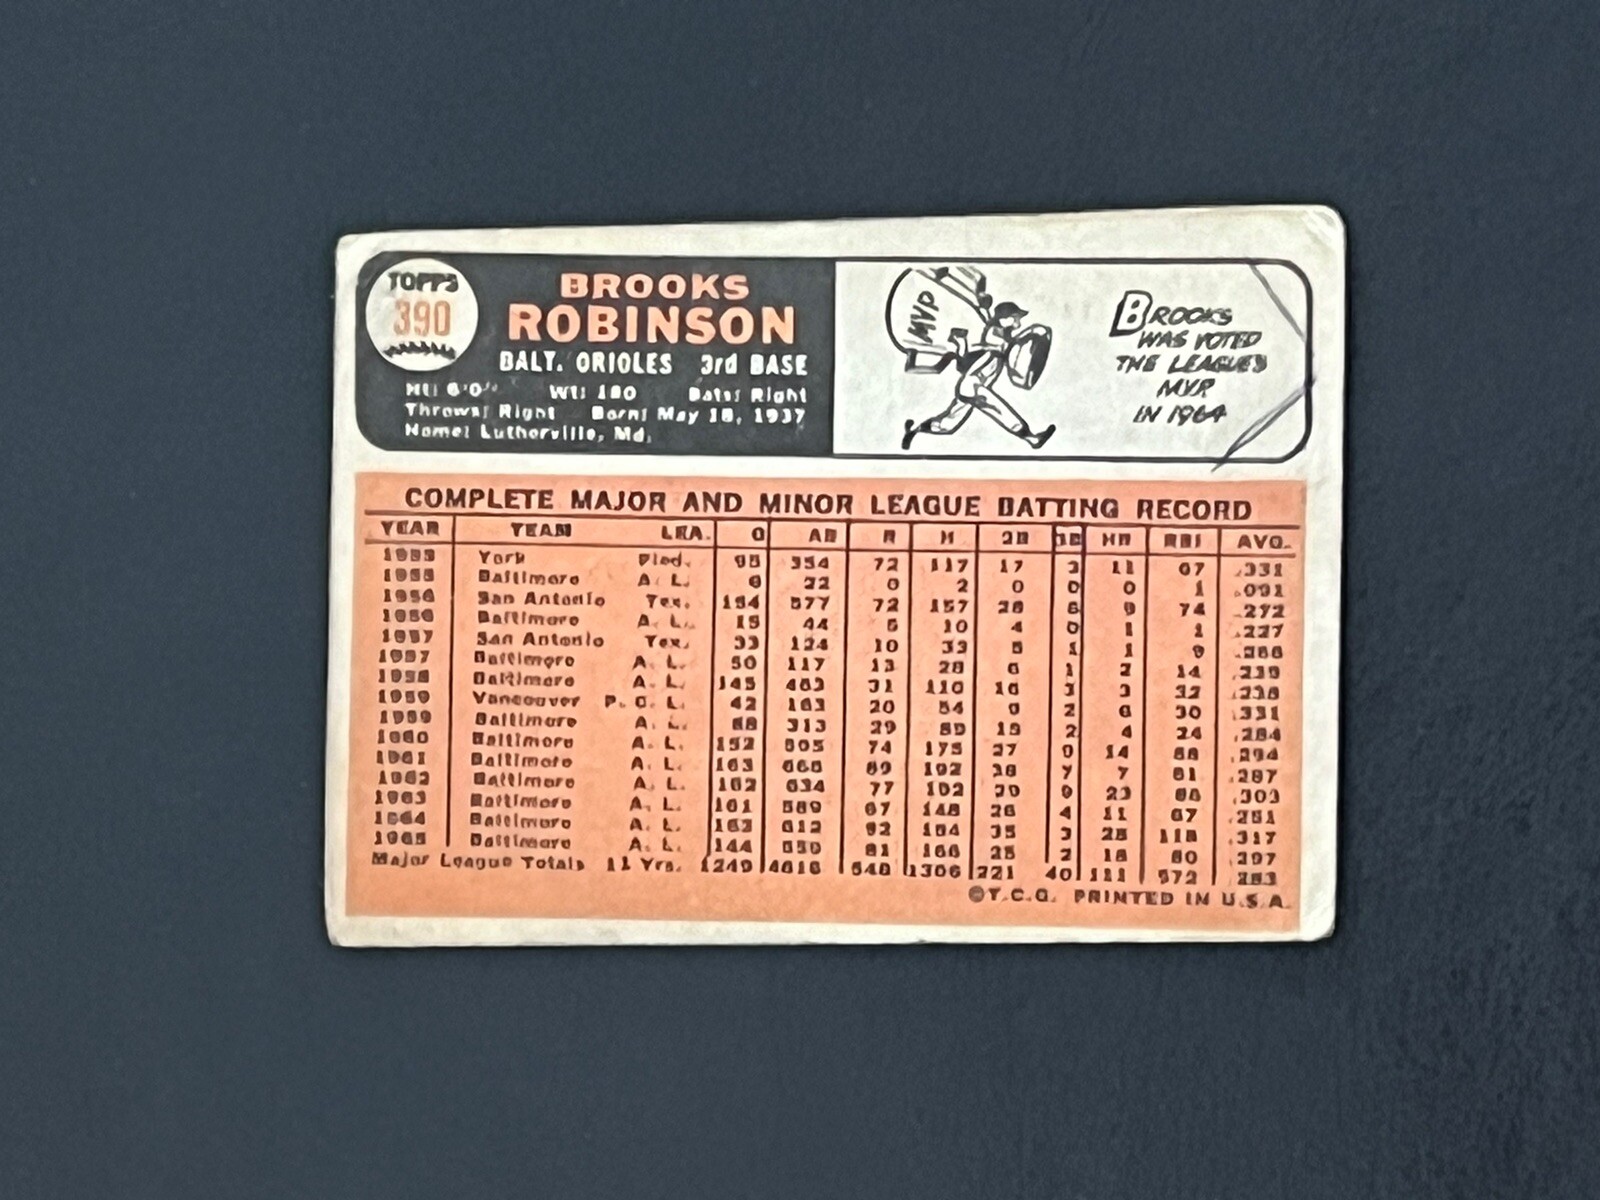 TOPPS
390
BROOKS
ROBINSON
BALT. ORIOLES 3rd BASE
Ht: 6'0" Wt: 180 Bats: Right
Throws: Right Born: May 18, 1937
Home: Lutherville, Md.
MVP
BROOKS
WAS VOTED
THE LEAGUE'S
MVP
IN 1964
COMPLETE MAJOR AND MINOR LEAGUE BATTING RECORD
YEAR TEAM LEA. G AB R H 2B 3B HR RBI AVG.
1955 York Pied. 95 354 72 117 17 3 11 67 .331
1955 Baltimore A. L. 6 22 0 2 0 0 0 1 .091
1956 San Antonio Tex. 154 577 72 157 28 6 9 74 .272
1956 Baltimore A. L. 15 44 5 10 4 0 1 1 .227
1957 San Antonio Tex. 33 124 10 33 5 1 1 9 .266
1957 Baltimore A. L. 50 117 13 28 6 1 2 14 .239
1958 Baltimore A. L. 145 463 31 110 16 3 3 32 .238
1959 Vancouver P. C. L. 42 163 20 54 9 2 6 30 .331
1959 Baltimore A. L. 88 313 29 89 15 2 4 24 .284
1960 Baltimore A. L. 152 595 74 175 27 9 14 88 .294
1961 Baltimore A. L. 163 668 89 192 38 7 7 61 .287
1962 Baltimore A. L. 162 634 77 192 29 9 23 86 .303
1963 Baltimore A. L. 161 589 67 148 26 4 11 67 .251
1964 Baltimore A. L. 163 612 82 194 35 3 28 118 .317
1965 Baltimore A. L. 144 559 81 166 25 2 18 80 .297
Major League Totals 11 Yrs. 1249 4616 548 1306 221 40 111 572 .283
©T.C.G. PRINTED IN U.S.A.